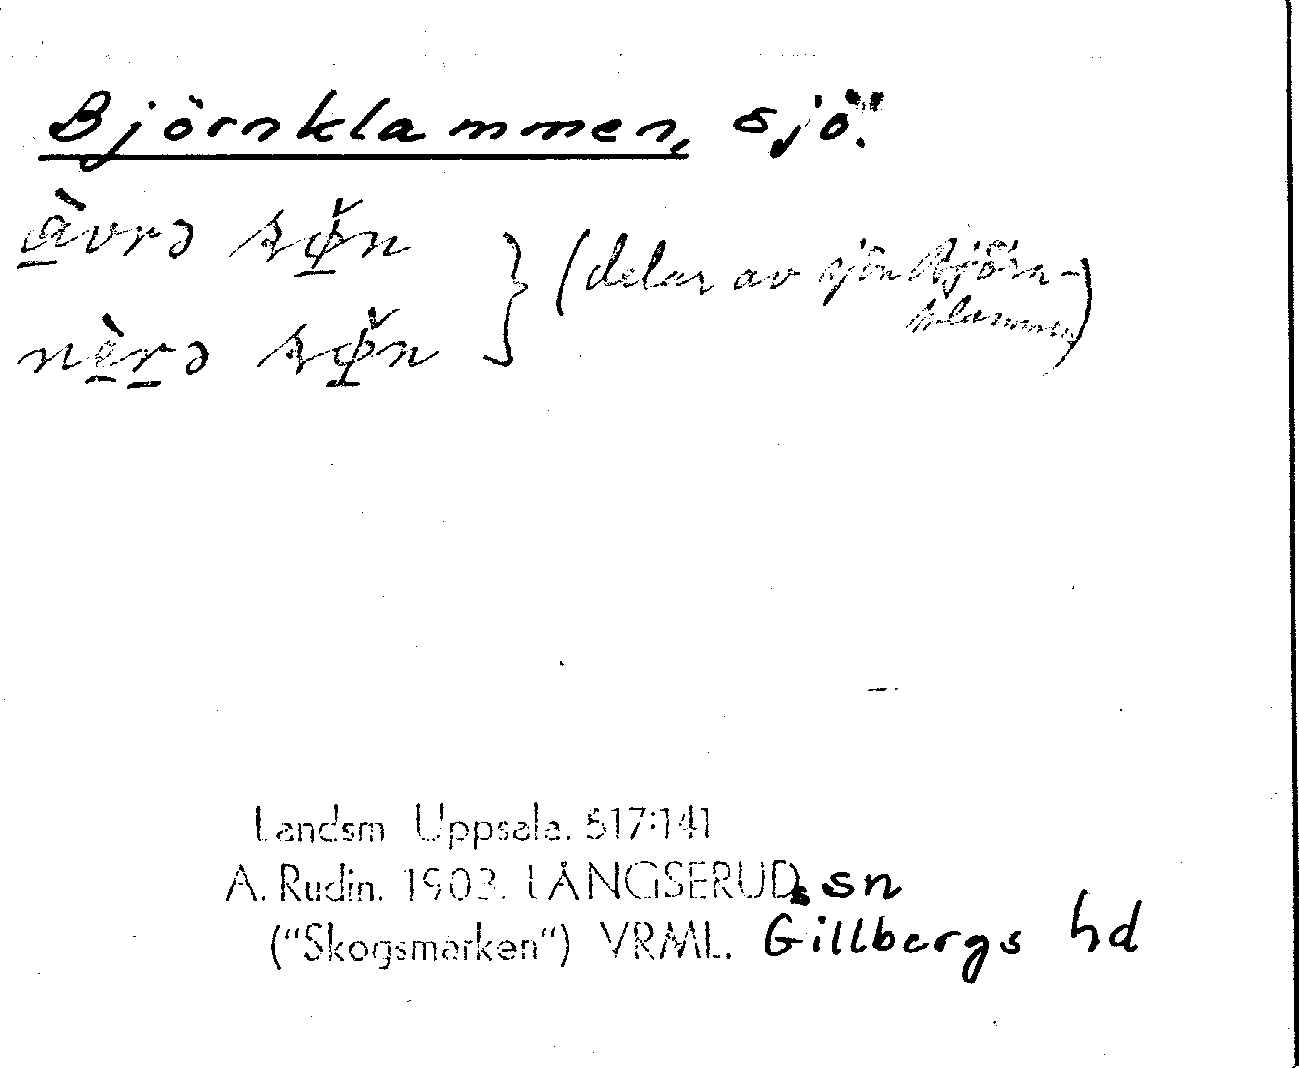 Björnklammen, sjö.
àvrə
nèrə
(delar av sjön Björn-
klammen)
Landsm Uppsala. 517:141
A. Rudin. 1903. LÅNGSERUDs sn
("Skogsmarken") VRML. Gillbergs hd